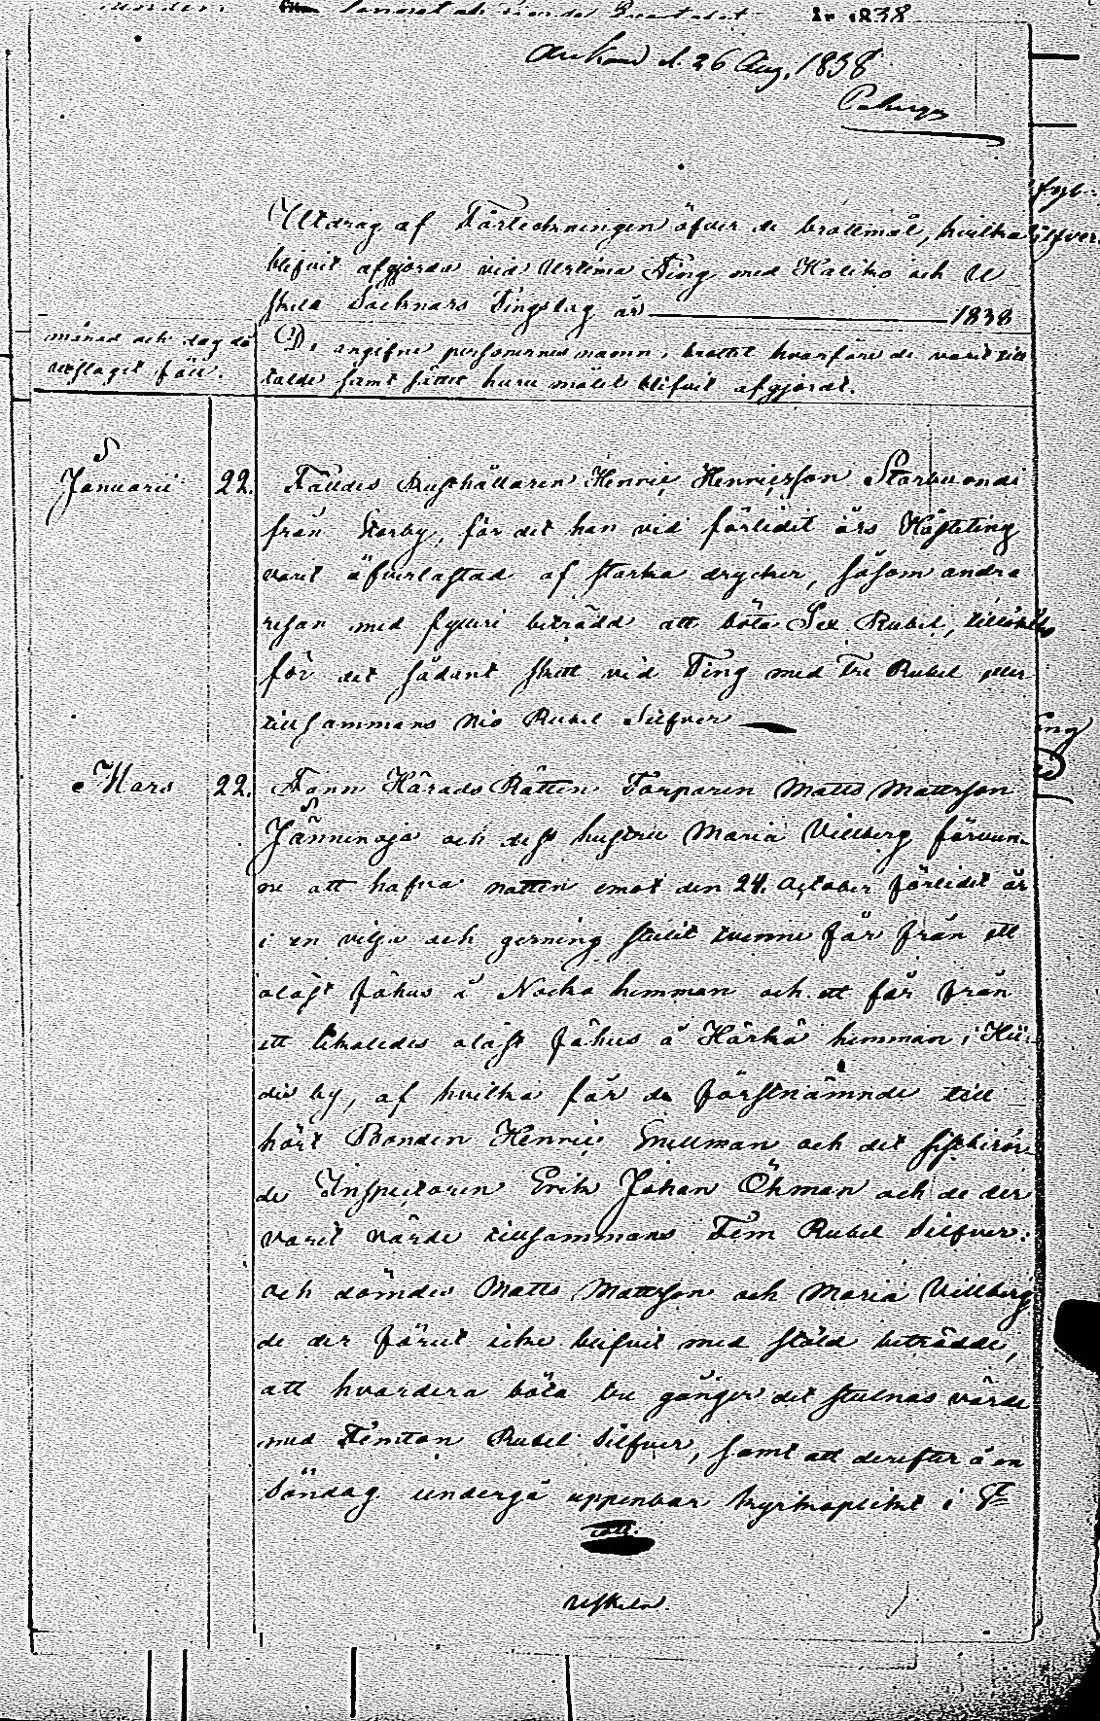 År 1838
Ank. d. 26 Aug. 1838
Utdrag af Förteckningen öfver de brottmål, hvilka
blifvit afgjorda vid Urtima Ting med Kaliko och U
skela Socknars Tingslag år 1838
månad och dag då
utslaget föll.
De angifne personernes namn, brottet hvarföre de varit till
talde samt sättet huru målet blifvit afgjordt.
Januarii 22. Fälldes Rusthållaren Henric Henricsson Storbonde
från Storby, för det han vid förlidit års Höstting
varit öfverlastad af starka drycker, såsom andra
resan med fylleri beträdd att böta Sex Rubel, tillökte
för det sådant skett vid Ting med Tre Rubel eller
tillsammans Nio Rubel Silfver
Mars 22. Fann Härads Rätten Torparen Matts Mattsson
Jänninoja och dess hustru Maria Villberg förvun-
ne att hafva natten emot den 24. October förlidet år
i en vilja och gerning stulit tvenne får från ett
olåst fähus å Nocka hemman och ett får från
ett likaledes olåst fähus å Härkä hemman i Hii-
dis by, af hvilka får de förstnämnde till
hört Bonden Henric Snellman och det sistberör-
de Inspectoren Erik Johan Öhman och de der
varit värde tillsammans Fem Rubel Silfver;
och dömdes Matts Mattsson och Maria Villberg
de der förut icke blifvit med stöld beträdde,
att hvardera böta tre gånger det stulnas värde
med Femton Rubel Silfver, samt att derefter å en
Söndag undergå uppenbar kyrkoplikt i